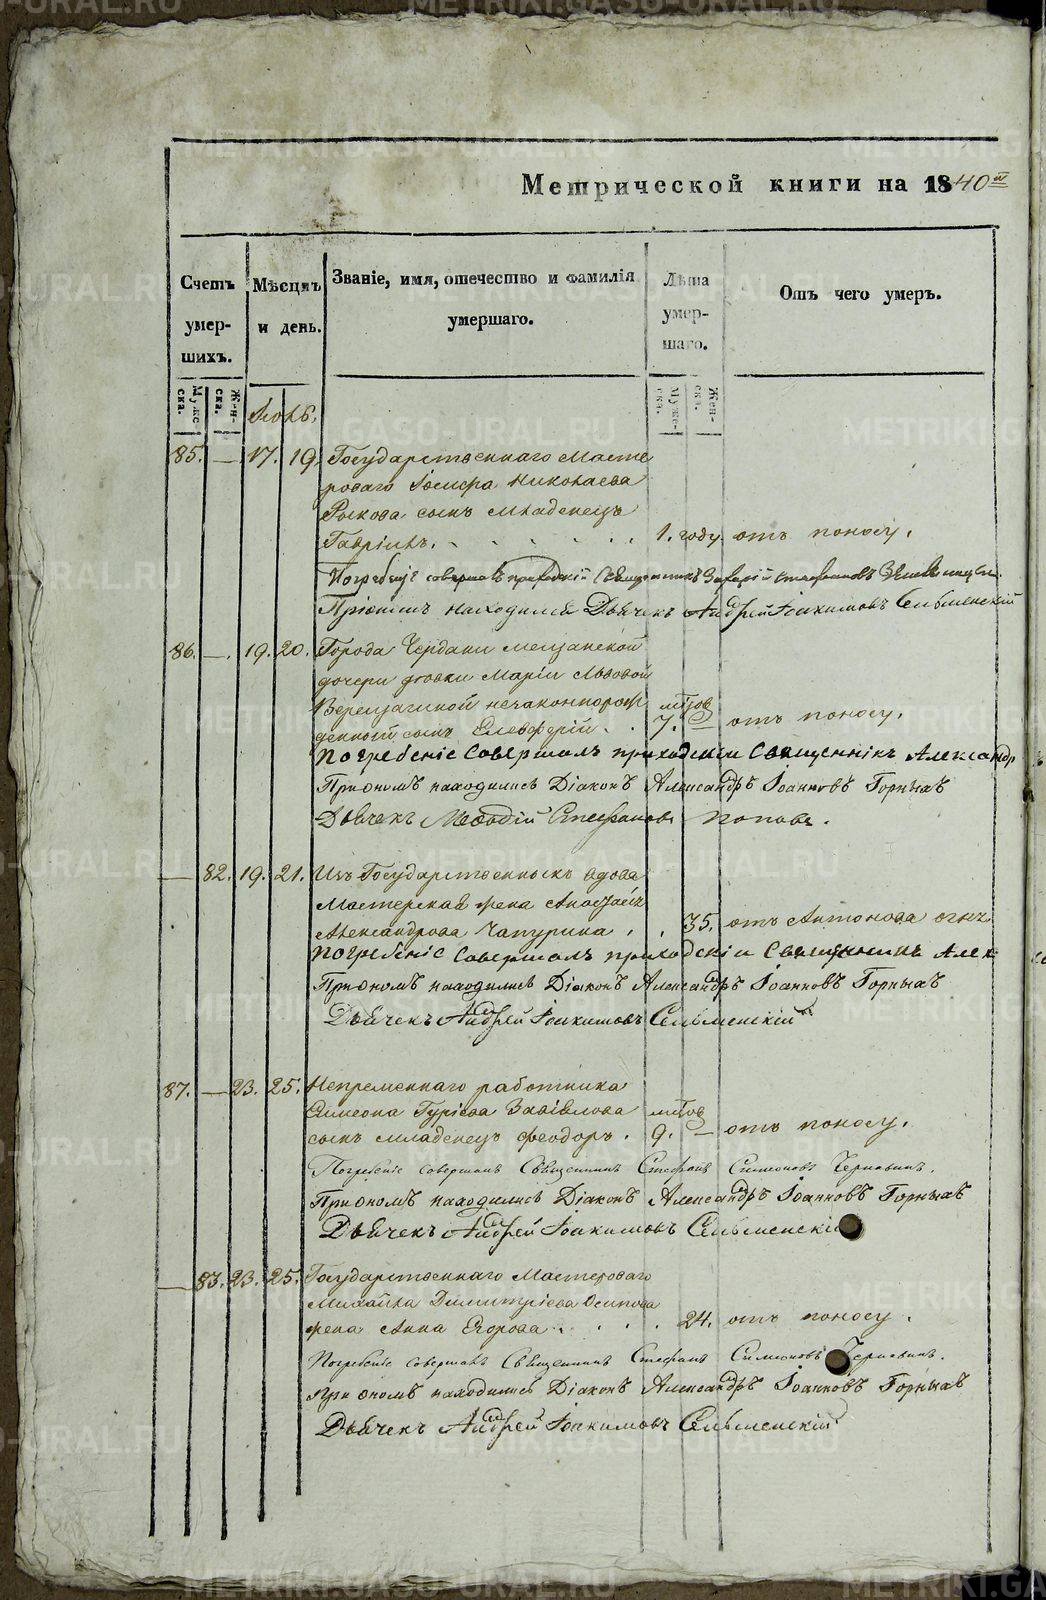 Метрической книги на 1840й
Счетъ умер-шихъ.
Мѣсяцъ и день.
Званіе, имя, отечество и фамилія умершаго.
Лѣта умер-шаго.
Отъ чего умеръ.
Мужеска. Женска.
Мужеска. Женска.
85. — 17. 19. Государственнаго Масте
роваго Іосифа Николаева
Рыкова сынъ младенецъ
Гавріилъ. 1. году. отъ поносу.
Погребеніе совершалъ приходскій Священникъ Захарій Стефановъ
Пріономъ находился Дьячекъ Андрей Іоакимовъ Сельменскій
86. — 19. 20. Города Чердани мещанской
дочери девки Маріи Львовой
Верещагиной незаконнорож
денный сынъ Елевферій. 7. — отъ поносу.
Погребеніе Совершалъ приходскіи Священнікъ Александр
Приономъ находились Діаконъ Александръ Іоанновъ Горныхъ
Дьячекъ Мефодій Стефановъ Поповъ.
— 82. 19. 21. Изъ Государственныхъ вдова
Мастерская жена
Александрова Чапурина 35. отъ Антонова огня
Погребеніс Совершалъ приходскіи Священникъ Алек
Приономъ находились Діаконъ Александръ Іоанновъ Горныхъ
Дьячекъ Андрей Іоакимовъ Сельменскій
87. — 23. 25. Непременнаго работника
Симеона Гурієва Завіялова
сынъ младенецъ феодоръ. 9. — отъ поносу.
Погребеніе совершалъ Священникъ Стефанъ Симеоновъ Чернавинъ.
Приономъ находились Діаконъ Александръ Іоанновъ Горныхъ
Дьячекъ Андрей Іоакимовъ Сельменскій
— 83. 23. 25. Государственнаго Мастероваго
Михайла Димитріева Осипова
жена Анна Егорова 24. отъ поносу.
Погребеніе совершалъ Священникъ Стефанъ Симеоновъ Чернавинъ.
При ономъ находились Діаконъ Александръ Іоанновъ Горныхъ
Дьячекъ Андрей Іоакимовъ Сельменскій
METRIKI.GASO-URAL.RU